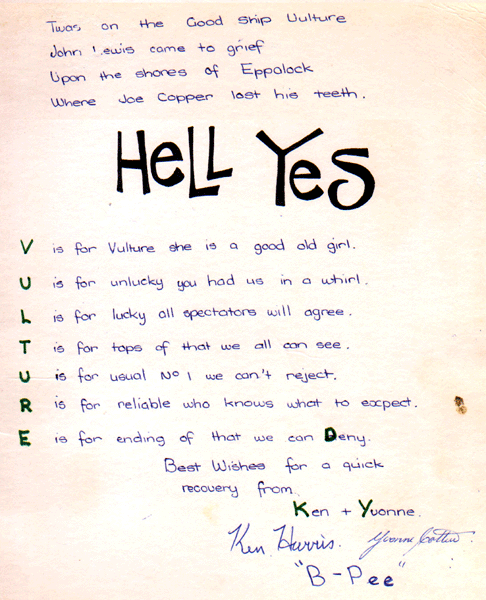 Twas on the Good ship Vulture
John Lewis came to grief
Upon the shores of Eppalock
Where Joe Copper lost his teeth.
HeLL Yes
V is for Vulture she is a good old girl.
U is for unlucky you had us in a whirl.
L is for lucky all spectators will agree.
T is for tops of that we all can see.
U is for usual No 1 we can't reject.
R is for reliable who knows what to expect.
E is for ending of that we can Deny.
Best Wishes for a quick
recovery from
Ken + Yvonne.
Ken Harris. Yvonne
"B-Pee"